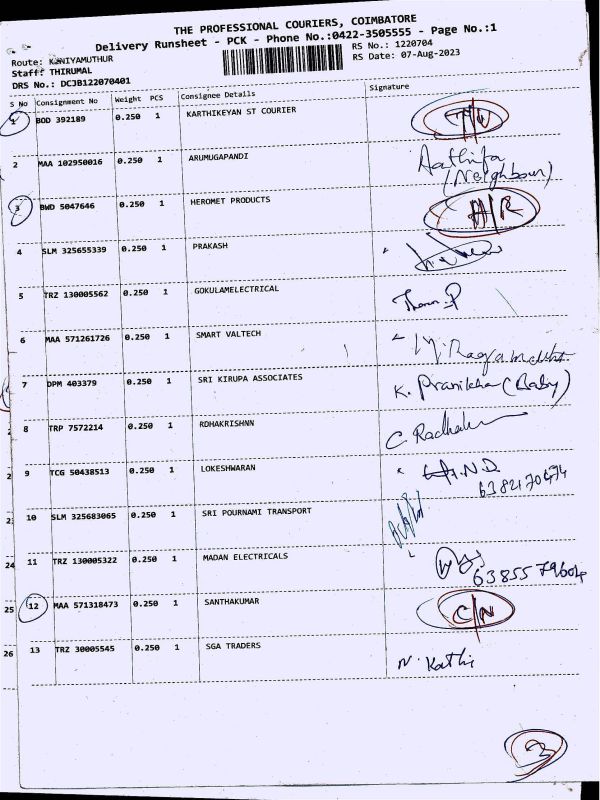 THE PROFESSIONAL COURIERS, COIMBATORE
Delivery Runsheet - PCK - Phone No.:0422-3505555 - Page No.:1
Route: KUNIYAMUTHUR RS No.: 1220704
Staff: THIRUMAL RS Date: 07-Aug-2023
DRS No.: DCJB122070401
S No Consignment No Weight PCS Consignee Details Signature
1 BOD 392189 0.250 1 KARTHIKEYAN ST COURIER
2 MAA 102950016 0.250 1 ARUMUGAPANDI Aathifa
(Neighbour)
3 BWD 5047646 0.250 1 HEROMET PRODUCTS H/R
4 SLM 325655339 0.250 1 PRAKASH
5 TRZ 130005562 0.250 1 GOKULAMELECTRICAL
6 MAA 571261726 0.250 1 SMART VALTECH
7 DPM 403379 0.250 1 SRI KIRUPA ASSOCIATES K. Pranikha (Baby)
8 TRP 7572214 0.250 1 RDHAKRISHNN
9 TCG 50438513 0.250 1 LOKESHWARAN
10 SLM 325683065 0.250 1 SRI POURNAMI TRANSPORT
24 11 TRZ 130005322 0.250 1 MADAN ELECTRICALS
25 12 MAA 571318473 0.250 1 SANTHAKUMAR C/N
26 13 TRZ 30005545 0.250 1 SGA TRADERS N. Kathi
3